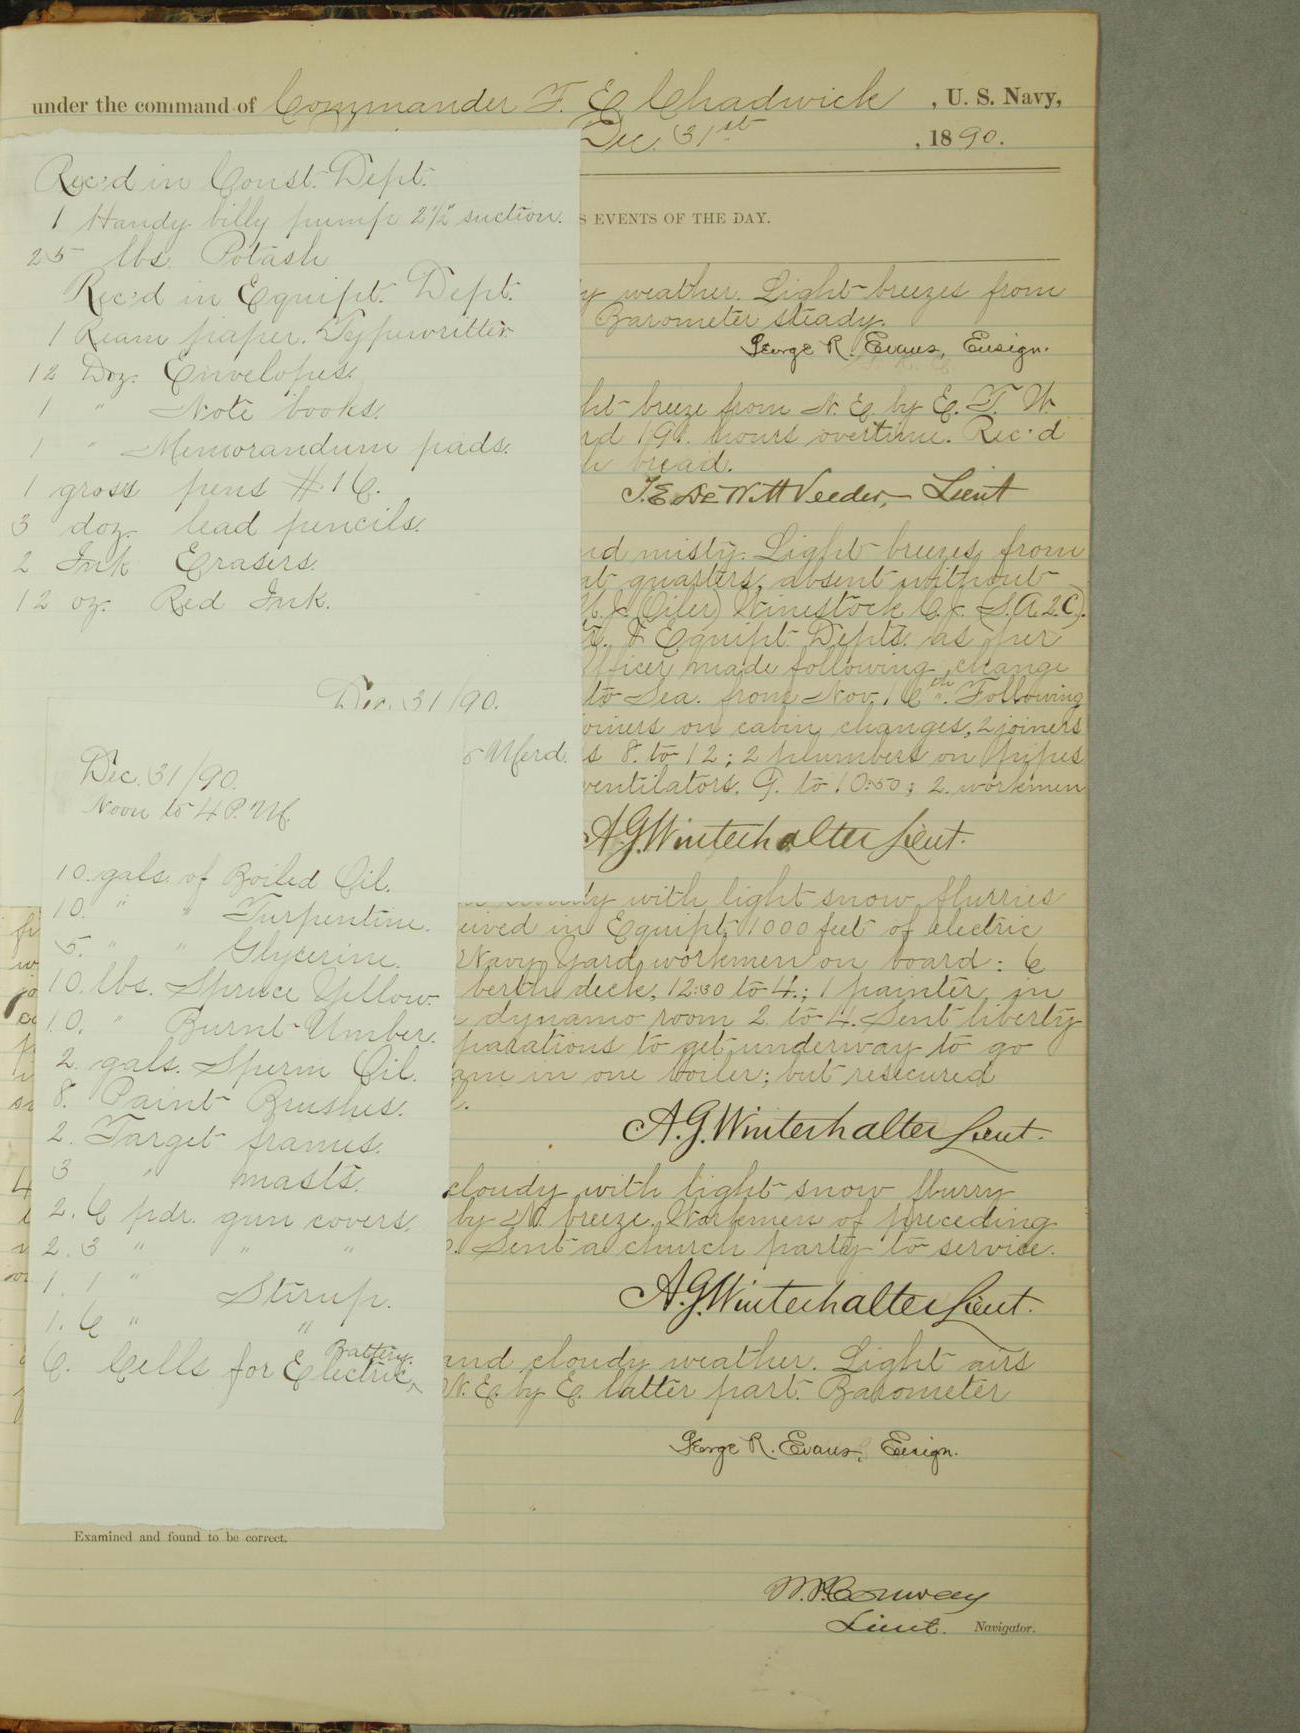 under the command of Commander F. E. Chadwick, U. S. Navy,
Dec. 31st, 1890.
EVENTS OF THE DAY.
Rec'd in Const. Dept.
1 Handy billy pump 2½" suction.
25 lbs. Potash
Rec'd in Equipt. Dept.
1 Ream paper. Typewritter
12 Doz. Envelopes.
1 " Note books.
1 " Memorandum pads.
1 gross pens # 16.
3 doz. lead pencils.
2 Ink Erasers.
12 oz. Red Ink.
Dec. 31/90.
Dec. 31/90.
Noon to 4 P.M.
10. gals. of Boiled Oil.
10. " " Turpentine.
5. " " Glycerine.
10. lbs. Spruce Yellow.
10. " Burnt Umber.
2. gals. Sperm Oil.
8. Paint Brushes.
2. Target frames.
3 " masts.
2. 6 pdr. gun covers.
2. 3 " " "
1. 1 " Stirup.
1. 6 " "
6. Cells for Electric Battery.
weather. Light breezes from
Barometer steady.
George R. Evans, Ensign.
breeze from N. E. by E. T. W.
hours overtime. Rec'd
bread.
T. E. DeWitt Veeder, Lieut
misty. Light breezes from
at quarters, absent without
(Oiler) Winestock C. J. (S.A.2C).
& Equipt. Depts. as per
made following change
to Sea. from Nov. 6th. Following
joiners on cabin changes, 2 joiners
8. to 12; 2 plumbers on pipes
ventilators. 9. to 10:50; 2. workmen
A. G. Winterhalter Lieut.
with light snow flurries
in Equipt. 1000 feet of electric
Navy Yard workmen on board: 6
berth deck, 12:30 to 4.; 1 painter in
dynamo room 2 to 4. Sent liberty
to get underway to go
in one boiler; but resecured
A. G. Winterhalter Lieut.
cloudy with light snow flurry
by N. breeze. Workmen of preceding
Sent a church party to service.
A. G. Winterhalter Lieut.
and cloudy weather. Light airs
N. E. by E. latter part. Barometer
George R. Evans, Ensign.
Examined and found to be correct.
Lieut. Navigator.